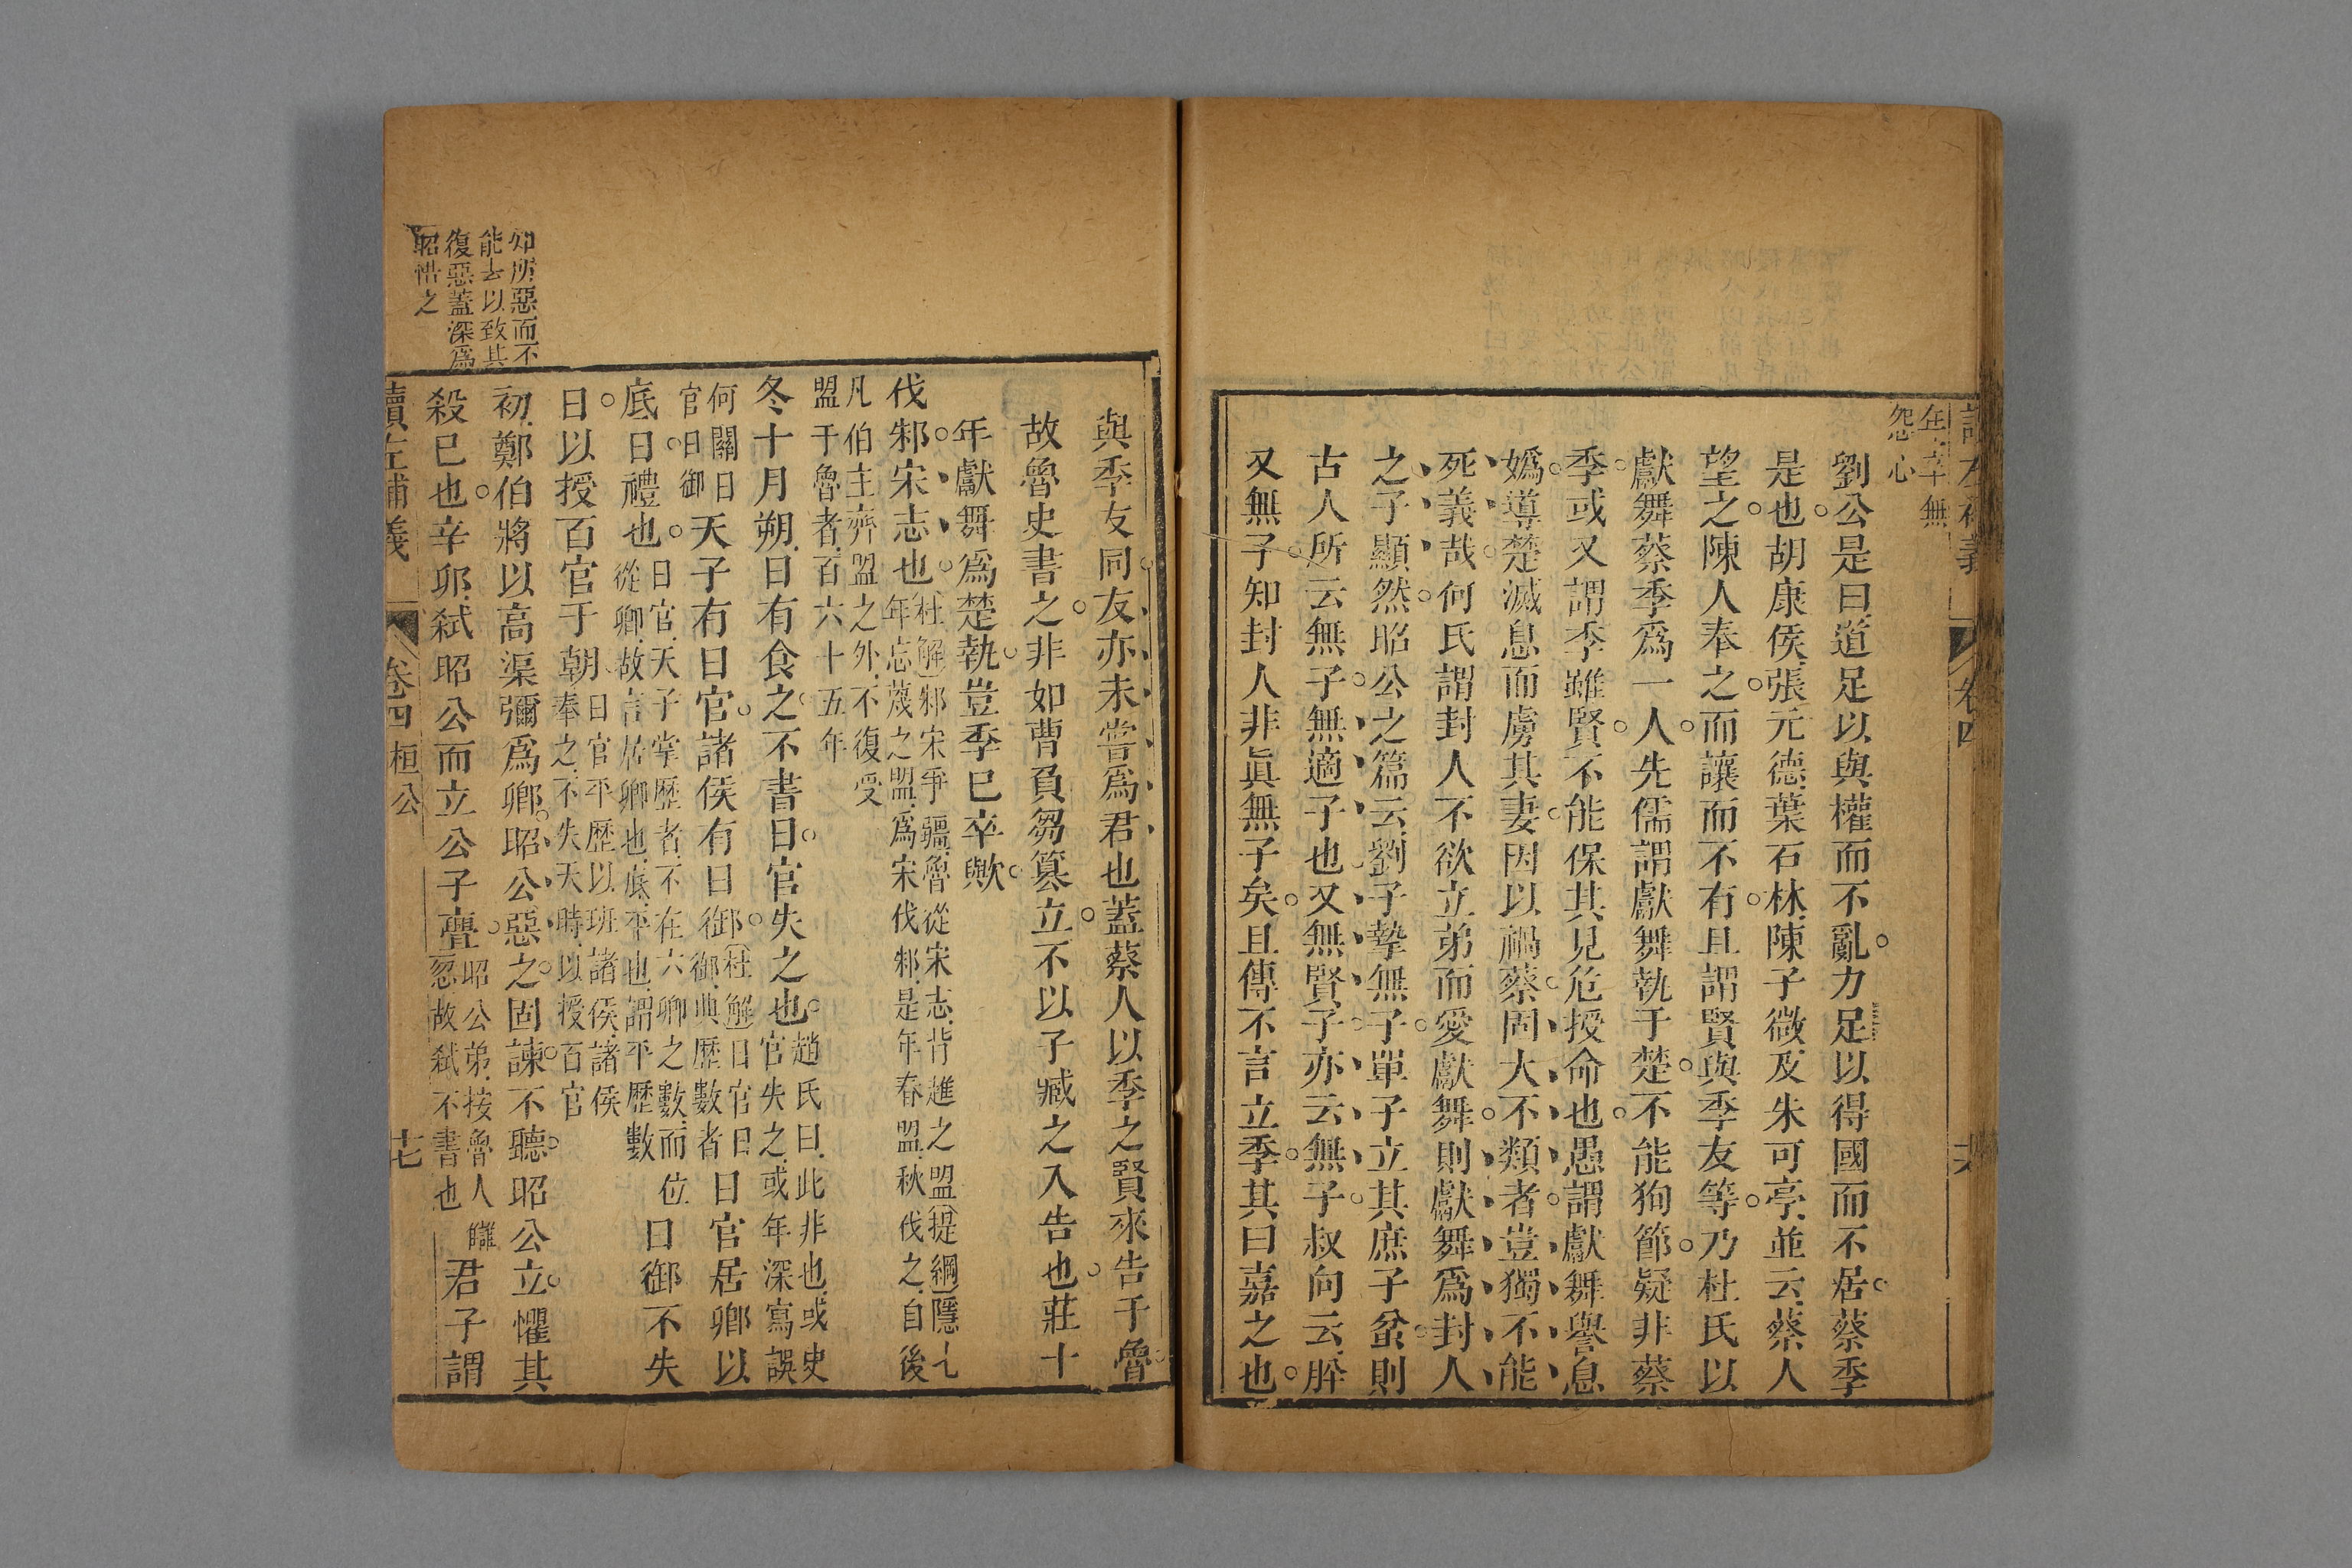 讀左補義
卷四
年卒無
怨心
劉公是曰道足以與權而不亂力足以得國而不居蔡季
是也胡康侯張元德葉石林陳子微及朱可亭並云蔡人
望之陳人奉之而讓而不有且謂賢與季友等乃杜氏以
獻舞蔡季爲一人先儒謂獻舞執于楚不能狥節疑非蔡
季或又謂季雖賢不能保其見危授命也愚謂獻舞譽息
嬀導楚滅息而虜其妻因以禍蔡固大不類者豈獨不能
死義哉何氏謂封人不欲立弟而愛獻舞則獻舞爲封人
之子顯然昭公之篇云劉子摯無子單子立其庶子蚠則
古人所云無子無適子也又無賢子亦云無子叔向云肸
又無子知封人非眞無子矣且傳不言立季其曰嘉之也
與季友同友亦未嘗爲君也蓋蔡人以季之賢來告于魯
故魯史書之非如曹負芻篡立不以子臧之入告也莊十
年獻舞爲楚執豈季已卒歟
伐邾宋志也
杜解邾宋爭疆魯從宋志背趡之盟提綱隱七
年忘蔑之盟爲宋伐邾是年春盟秋伐之自後
凡伯主齊盟之外不復受
盟于魯者百六十五年
冬十月朔日有食之不書日官失之也
趙氏曰此非也或史
官失之或年深寫誤
何關日
官日御
天子有日官諸侯有日御
杜解日官日
御典歷數者
日官居卿以
底日禮也
日官天子掌歷者不在六卿之數而位
從卿故言居卿也底平也謂平歷數
日御不失
日以授百官于朝
日官平歷以班諸侯諸侯
奉之不失天時以授百官
初鄭伯將以高渠彌爲卿昭公惡之固諫不聽昭公立懼其
殺已也辛卯弒昭公而立公子亹
昭公弟按魯人讎
忽故弒不書也
君子謂
知所惡而不
能去以致其
復惡蓋深爲
昭惜之
讀左補義
卷四 桓公
十七